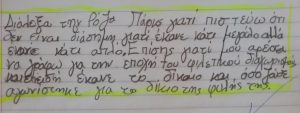 Διάλεξα την Ρόζα Πάρκς γιατί πιστεύω ότι
δεν είναι διάσημη γιατί έκανε κάτι μεγάλο αλλά
έκανε κάτι απλό. Επίσης γιατί μου αρέσει
να γράφω για την εποχή του φυλετικού διαχωρισμού
έκανε το δίκαιο και όσο ζούσε
αγωνίστηκε για το δίκιο της φυλής της.